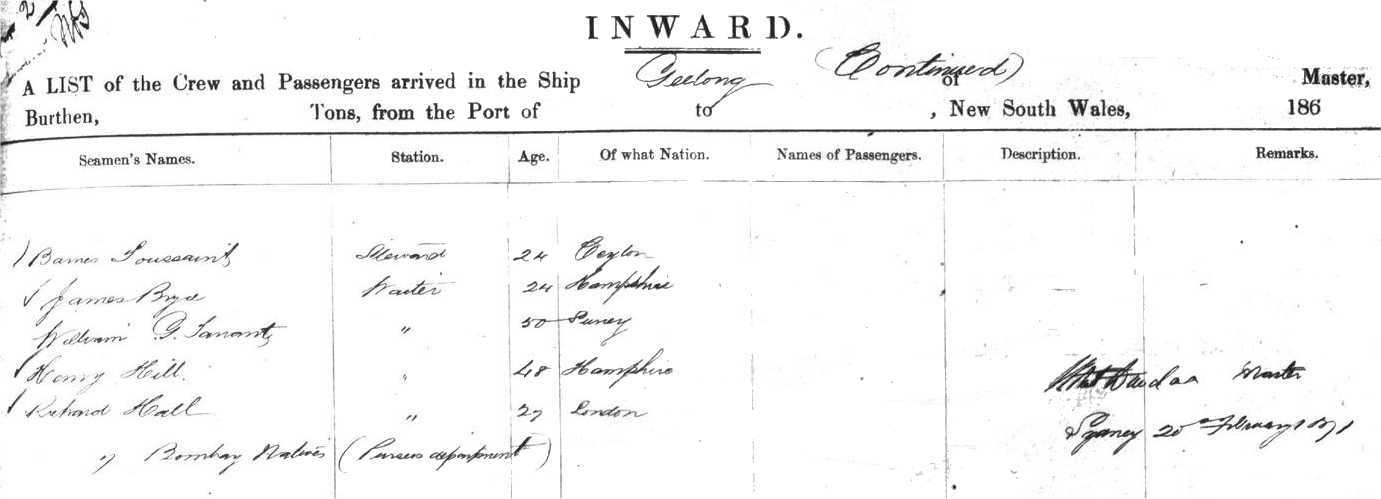 2
INWARD.
A LIST of the Crew and Passengers arrived in the Ship Geelong (Continued) of Master,
Burthen, Tons, from the Port of to , New South Wales, 186
Seamen's Names. Station. Age. Of what Nation. Names of Passengers. Description. Remarks.
Barnes Toussaint Steward 24 Ceylon
James Bryce Waiter 24 Hampshire
William G. " 50
Henry Hill. " 48 Hampshire
Master
Richard Hall " 27 London
Sydney 20th February 1871
7 Bombay Natives (Pursers department)